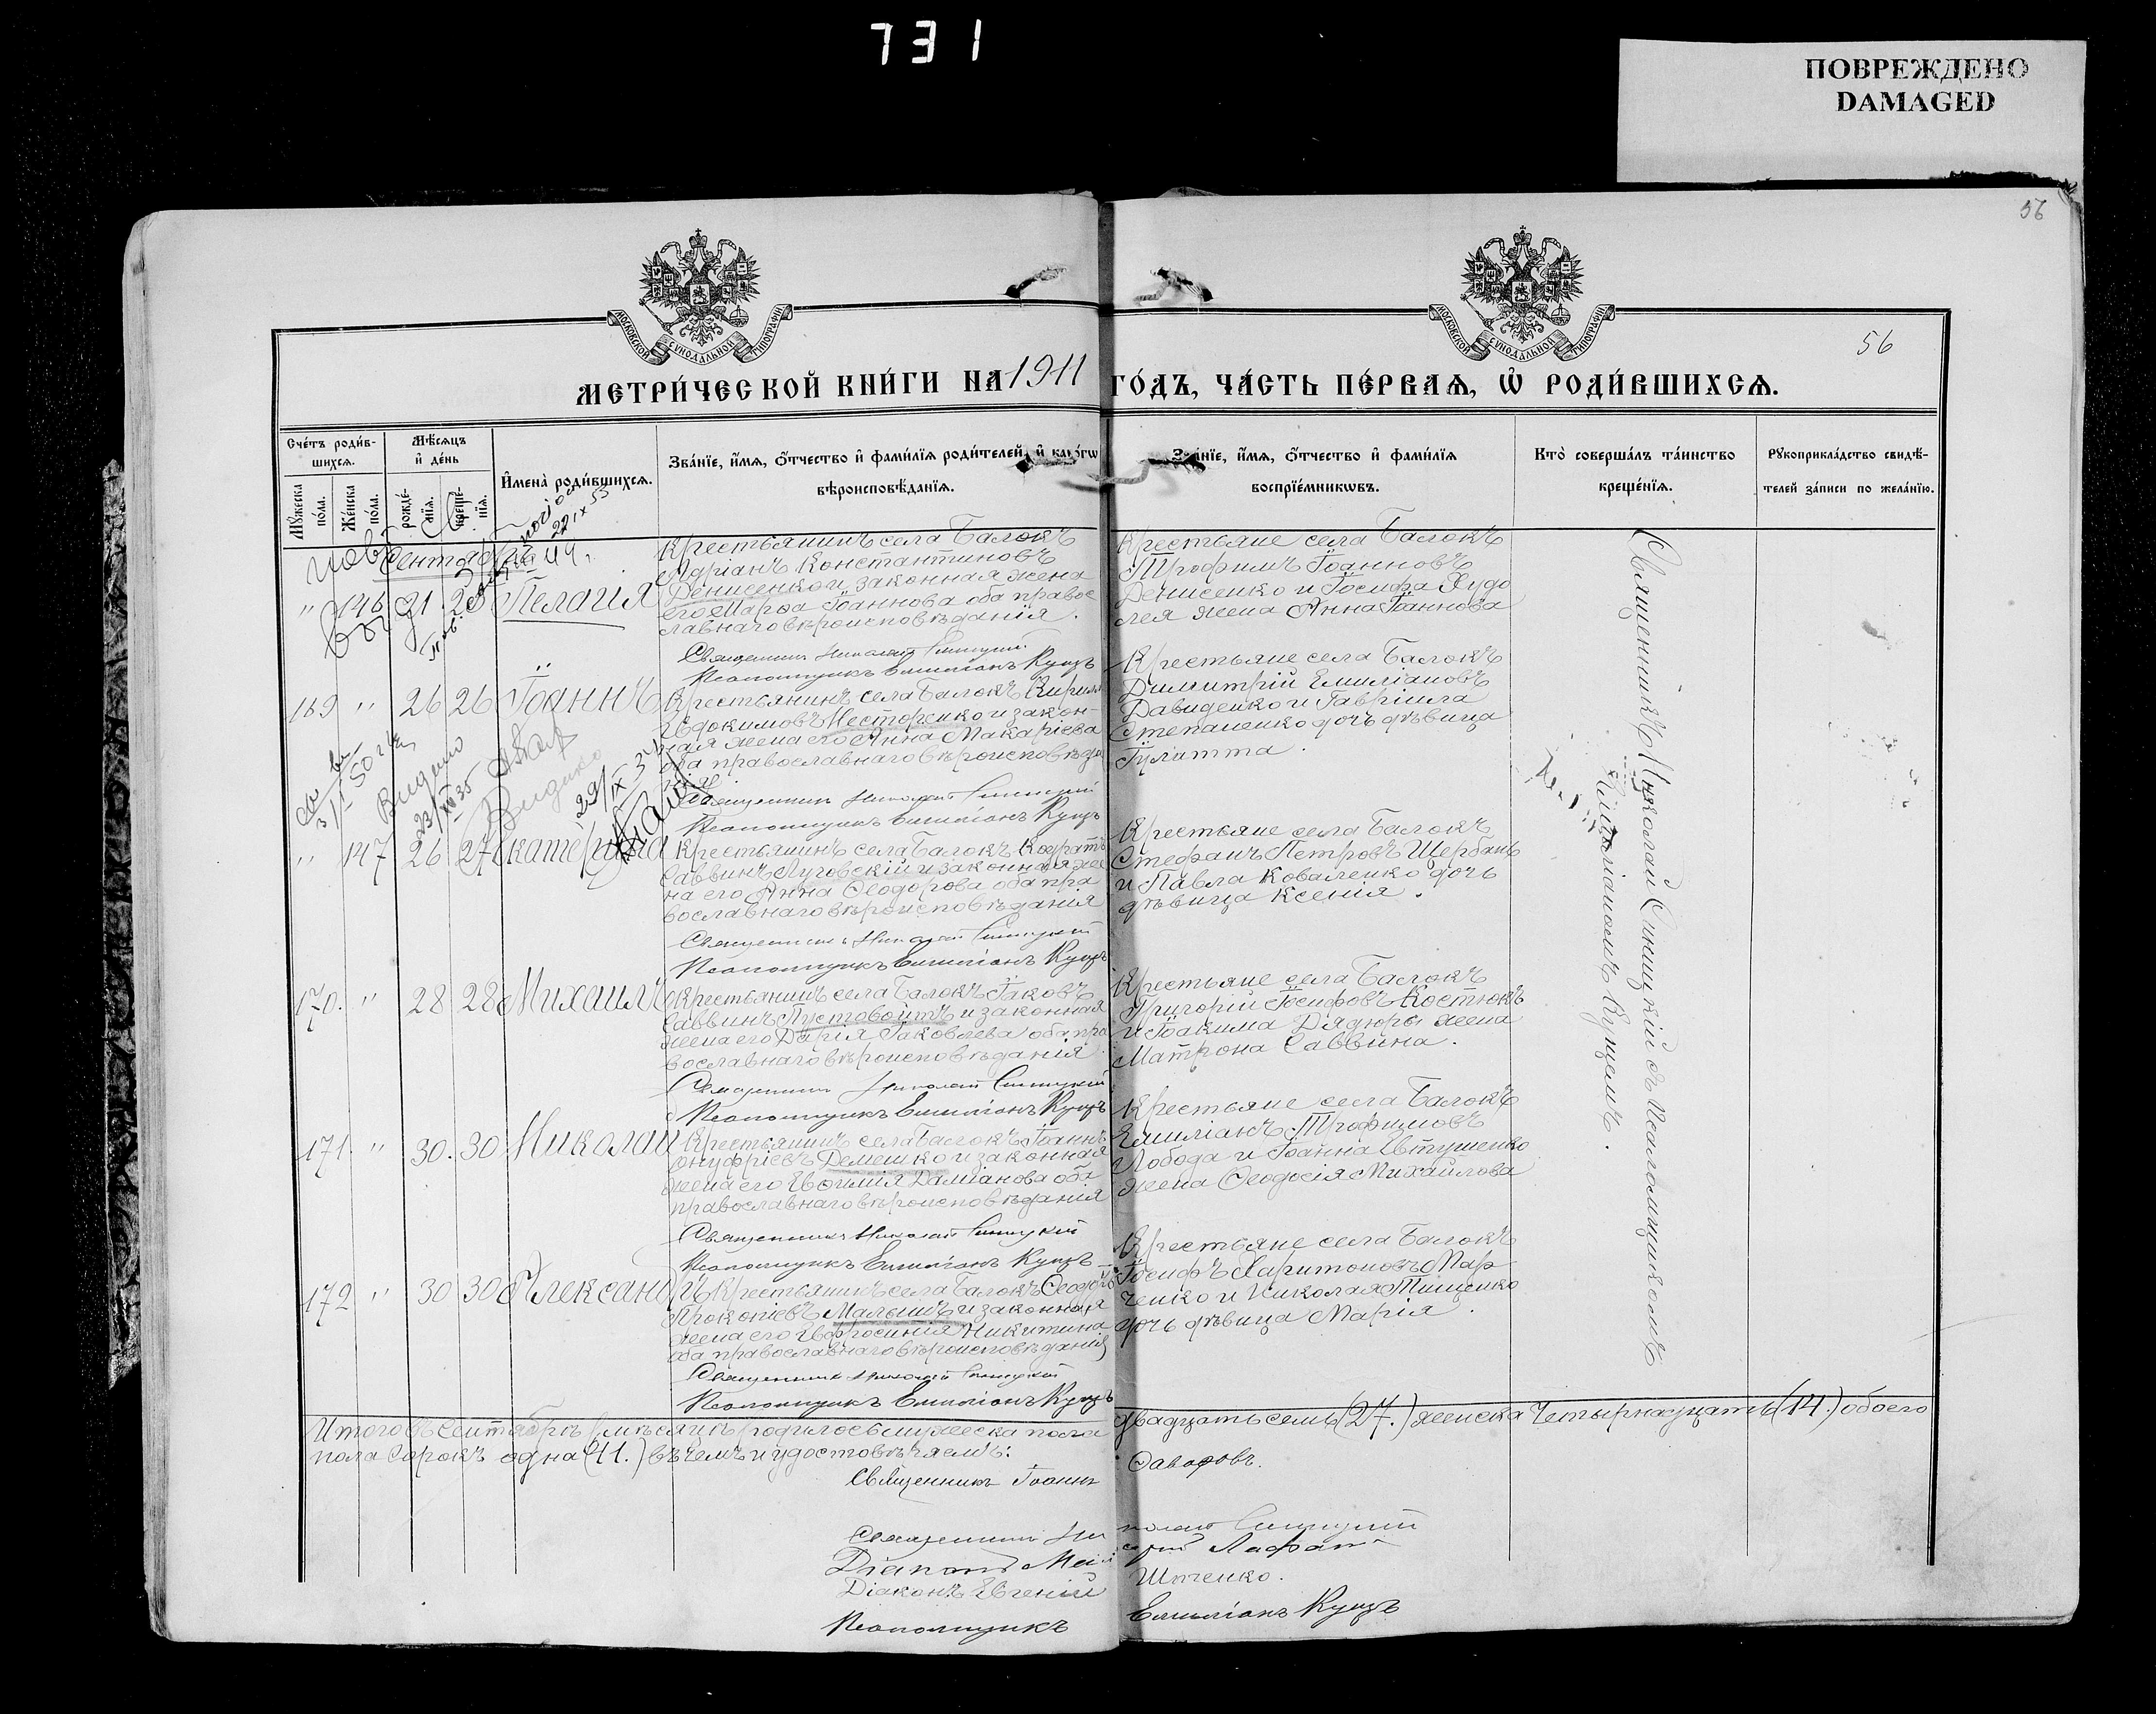 731
ПОВРЕЖДЕНО
DAMAGED
56
МОСКОВСКОЙ СѴНОДАЛЬНОЙ ТИПОГРАФІИ
МОСКОВСКОЙ СѴНОДАЛЬНОЙ ТИПОГРАФІИ
56
МЕТРИ́ЧЕСКОЙ КНИ́ГИ НА 1911 ГО́ДЪ, ЧА́СТЬ ПЕ́РВАѦ, Ѡ҆ РОДИ́ВШИХСѦ.
Сче́тъ роди́в-
шихсѧ.
Мꙋ́жеска по́ла.
Же́нска по́ла.
Мѣ́сѧцъ
и҆ де́нь
рожде́-
нїѧ.
креще́-
нїѧ.
И҆мена̀ роди́вшихсѧ.
Зва́нїе, и҆́мѧ, ѻ҆́тчество и҆ фами́лїѧ роди́телей, и҆ како́гѡ
вѣроисповѣ́данїѧ.
Зва́нїе, и҆́мѧ, ѻ҆́тчество и҆ фами́лїѧ
воспрїе́мникѡвъ.
Кто̀ соверша́лъ та́инство
креще́нїѧ.
Рꙋкоприкла́дство свидѣ́-
телей за́писи по жела́нїю.
Сентябрь
22 IX 55
44 г.
" 146 21 Пелагія
Крестьянинъ села Балокъ
Маріанъ Константиновъ
Денисенко и законная жена
его Марѳа Іоаннова оба право
славнаго вѣроисповѣданія.
Священникъ Николай Синицкій
Псаломщикъ Емиліанъ Кунцъ
Крестьяне села Балокъ
Трофимъ Іоанновъ
Денисенко и Іосифа Худо
лея жена Анна Іоаннова
169 " 26 26 Іоаннъ
Крестьянинъ села Балокъ Кирилл
Евдокимовъ Несторенко и закон-
ная жена его Анна Макаріева
оба православнаго вѣроисповѣда
нія
Священникъ Николай Синицкій
Псаломщикъ Емиліанъ Кунцъ
Крестьяне села Балокъ
Димитрій Емиліановъ
Давиденко и Гавріила
Степаненко дочь дѣвица
Іулитта.
Видано
29/IX 34
" 147 26 27 Екатерина
Крестьянинъ села Балокъ Кодратъ
Саввинъ Луговскій и законная же
на его Анна Ѳеодорова оба пра
вославнаго вѣроисповѣданія
Священникъ Николай Синицкій
Псаломщикъ Емиліанъ Кунцъ
Крестьяне села Балокъ
Стефанъ Петровъ Щербань
и Павла Коваленко дочь
дѣвица Ксенія.
170. " 28 28 Михаилъ
Крестьянинъ села Балокъ Іаковъ
Саввинъ Пустовойтъ и законная
жена его Дарія Іаковлева оба пра
вославнаго вѣроисповѣданія.
Священникъ Николай Синицкій
Псаломщикъ Емиліанъ Кунцъ
Крестьяне села Балокъ
Григорій Іосифовъ Костюкъ
и Іоакима Дядюры жена
Матрона Саввина.
171. " 30. 30 Николай
Крестьянинъ села Балокъ Іоаннъ
Онуфріевъ Демешко и законная
жена его Евфимія Даміанова оба
православнаго вѣроисповѣданія
Священникъ Николай Синицкій
Псаломщикъ Емиліанъ Кунцъ
Крестьяне села Балокъ
Емиліанъ Трофимовъ
Лобода и Іоанна Евтушенко
жена Ѳеодосія Михайлова
172 " 30 30 Александръ
Крестьянинъ села Балокъ Ѳеодоръ
Прокопіевъ Малышъ и законная
жена его Евфросинія Никитина
оба православнаго вѣроисповѣданія
Священникъ Николай Синицкій
Псаломщикъ Емиліанъ Кунцъ
Крестьяне села Балокъ
Іосифъ Харитоновъ Мар
ченко и Николая Тищенко
дочь дѣвица Марія.
Священникъ Николай Синицкій съ псаломщикомъ
Емиліаномъ Кунцемъ.
Итого въ Сентябрѣ мѣсяцѣ родилось мужеска пола двадцать семь (27.) женска четырнадцать (14.) обоего
пола сорокъ одна (41.) въ чемъ и удостовѣряемъ:
Священникъ Іоаннъ
Священникъ Николай Синицкій
Діаконъ
Діаконъ Евгеній
Псаломщикъ Емиліанъ Кунцъ